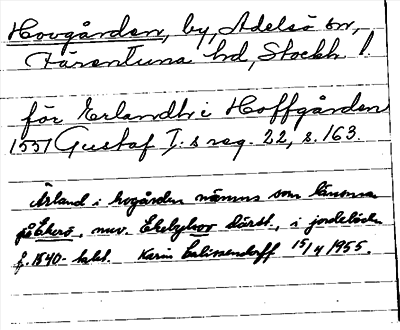 Hovgården, by, Adelsö sn,
Färentuna hd, Stockh l.
för Erlandh i Hoffgården
1551 Gustaf I:s reg. 22, s. 163.
Ärland i hogården nämns som länsman
på Ekerö, nuv. Ekebyhov därst., i jordeböcker
f. 1540-talet. Karin Calissendorff 15/4 1955.